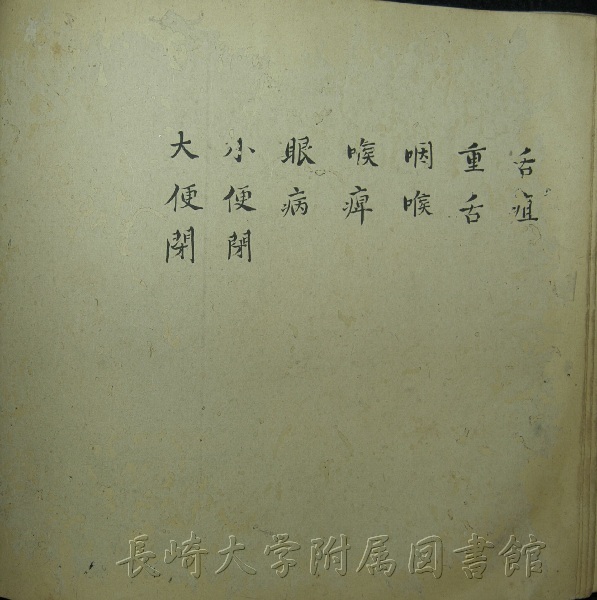 舌疽
重舌
咽喉
喉痺
眼病
小便閉
大便閉
長崎大学附属図書館